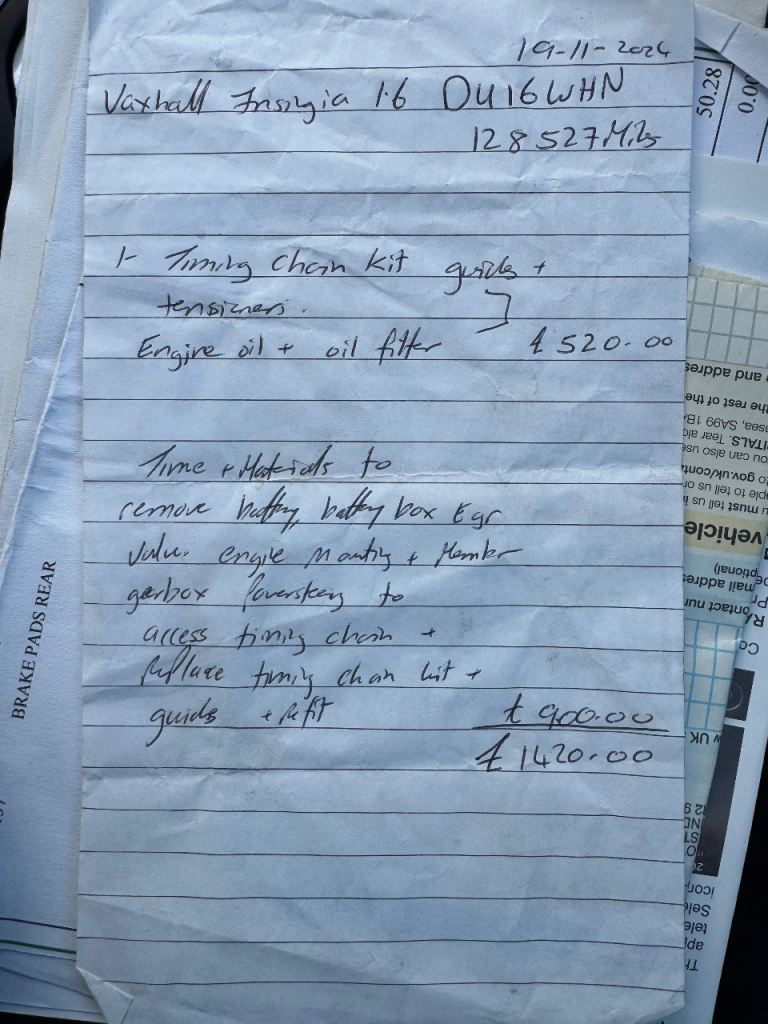 19-11-2024
Vaxhall Insignia 1.6 DU16WHN
128527 Miles
1- Timing chain kit guides +
tensioners.
Engine oil + oil filter £520.00
Time + Materials to
remove battery, battery box Egr
Valve. engine Mounting + Member
gearbox Powersteering to
access timing chain +
Replace timing chain kit +
guides + Refit £900.00
£1420.00
BRAKE PADS REAR
50.28
0.00
e and address
the rest of the
nsea, SA99 1BA
ITALS. Tear
ou can also use
to gov.uk/cont
ple to tell us or
u must tell us i
vehicle
optional)
mail address
ontact num
Co
w UK
icon
Sele
tele
app
Th